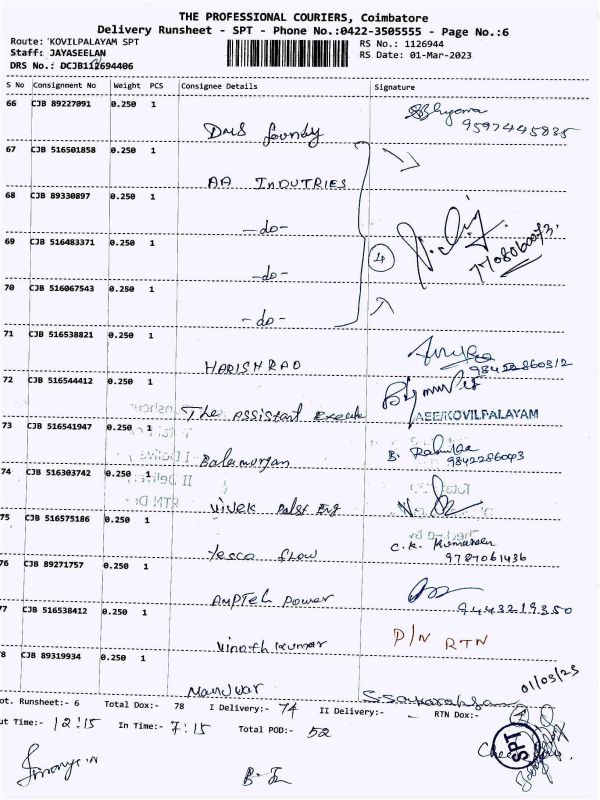 THE PROFESSIONAL COURIERS, Coimbatore
Delivery Runsheet - SPT - Phone No.:0422-3505555 - Page No.:6
Route: KOVILPALAYAM SPT
RS No.: 1126944
Staff: JAYASEELAN
RS Date: 01-Mar-2023
DRS No.: DCJB112694406
S No Consignment No Weight PCS Consignee Details Signature
66 CJB 89227091 0.250 1
9597445835
67 CJB 516501858 0.250 1
AA INDUTRIES
68 CJB 89330897 0.250 1
-do-
69 CJB 516483371 0.250 1
-do-
4
70 CJB 516067543 0.250 1
-do-
71 CJB 516538821 0.250 1
HARISH RAO
72 CJB 516544412 0.250 1
The Assistant
AEE/KOVILPALAYAM
73 CJB 516541947 0.250 1
Balamurjan B.
74 CJB 516303742 0.250 1
vivek
75 CJB 516575186 0.250 1
C.K.
9787061436
76 CJB 89271757 0.250 1
Amptel Power 9443219350
77 CJB 516538412 0.250 1
Vinoth kumar D/N RTN
78 CJB 89319934 0.250 1
01/03/23
ot. Runsheet:- 6 Total Dox:- 78 I Delivery:- 74 II Delivery:- - RTN Dox:-
ut Time:- 12:15 In Time:- 7:15 Total POD:- 52
SPT